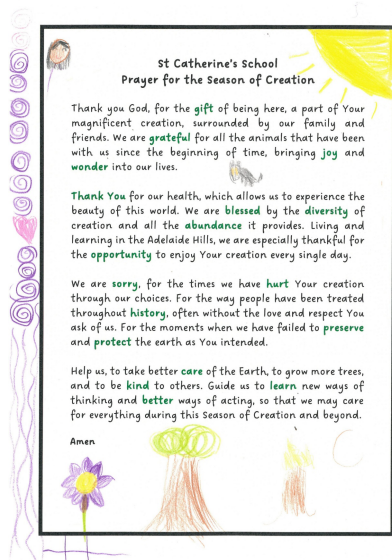 St Catherine's School
Prayer for the Season of Creation
Thank you God, for the gift of being here, a part of Your
magnificent creation, surrounded by our family and
friends. We are grateful for all the animals that have been
with us since the beginning of time, bringing joy and
wonder into our lives.
Thank You for our health, which allows us to experience the
beauty of this world. We are blessed by the diversity of
creation and all the abundance it provides. Living and
learning in the Adelaide Hills, we are especially thankful for
the opportunity to enjoy Your creation every single day.
We are sorry, for the times we have hurt Your creation
through our choices. For the way people have been treated
throughout history, often without the love and respect You
ask of us. For the moments when we have failed to preserve
and protect the earth as You intended.
Help us, to take better care of the Earth, to grow more trees,
and to be kind to others. Guide us to learn new ways of
thinking and better ways of acting, so that we may care
for everything during this Season of Creation and beyond.
Amen